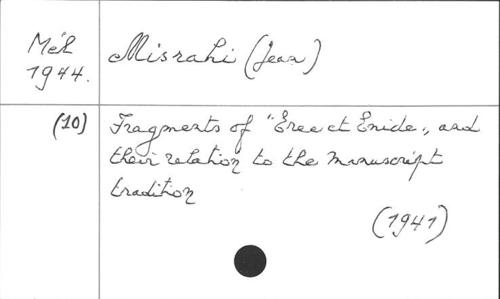 Mél
1944.
Misrahi (Jean)
(10)
Fragments of "Erec et Enide", and
their relation to the manuscript
tradition
(1941)